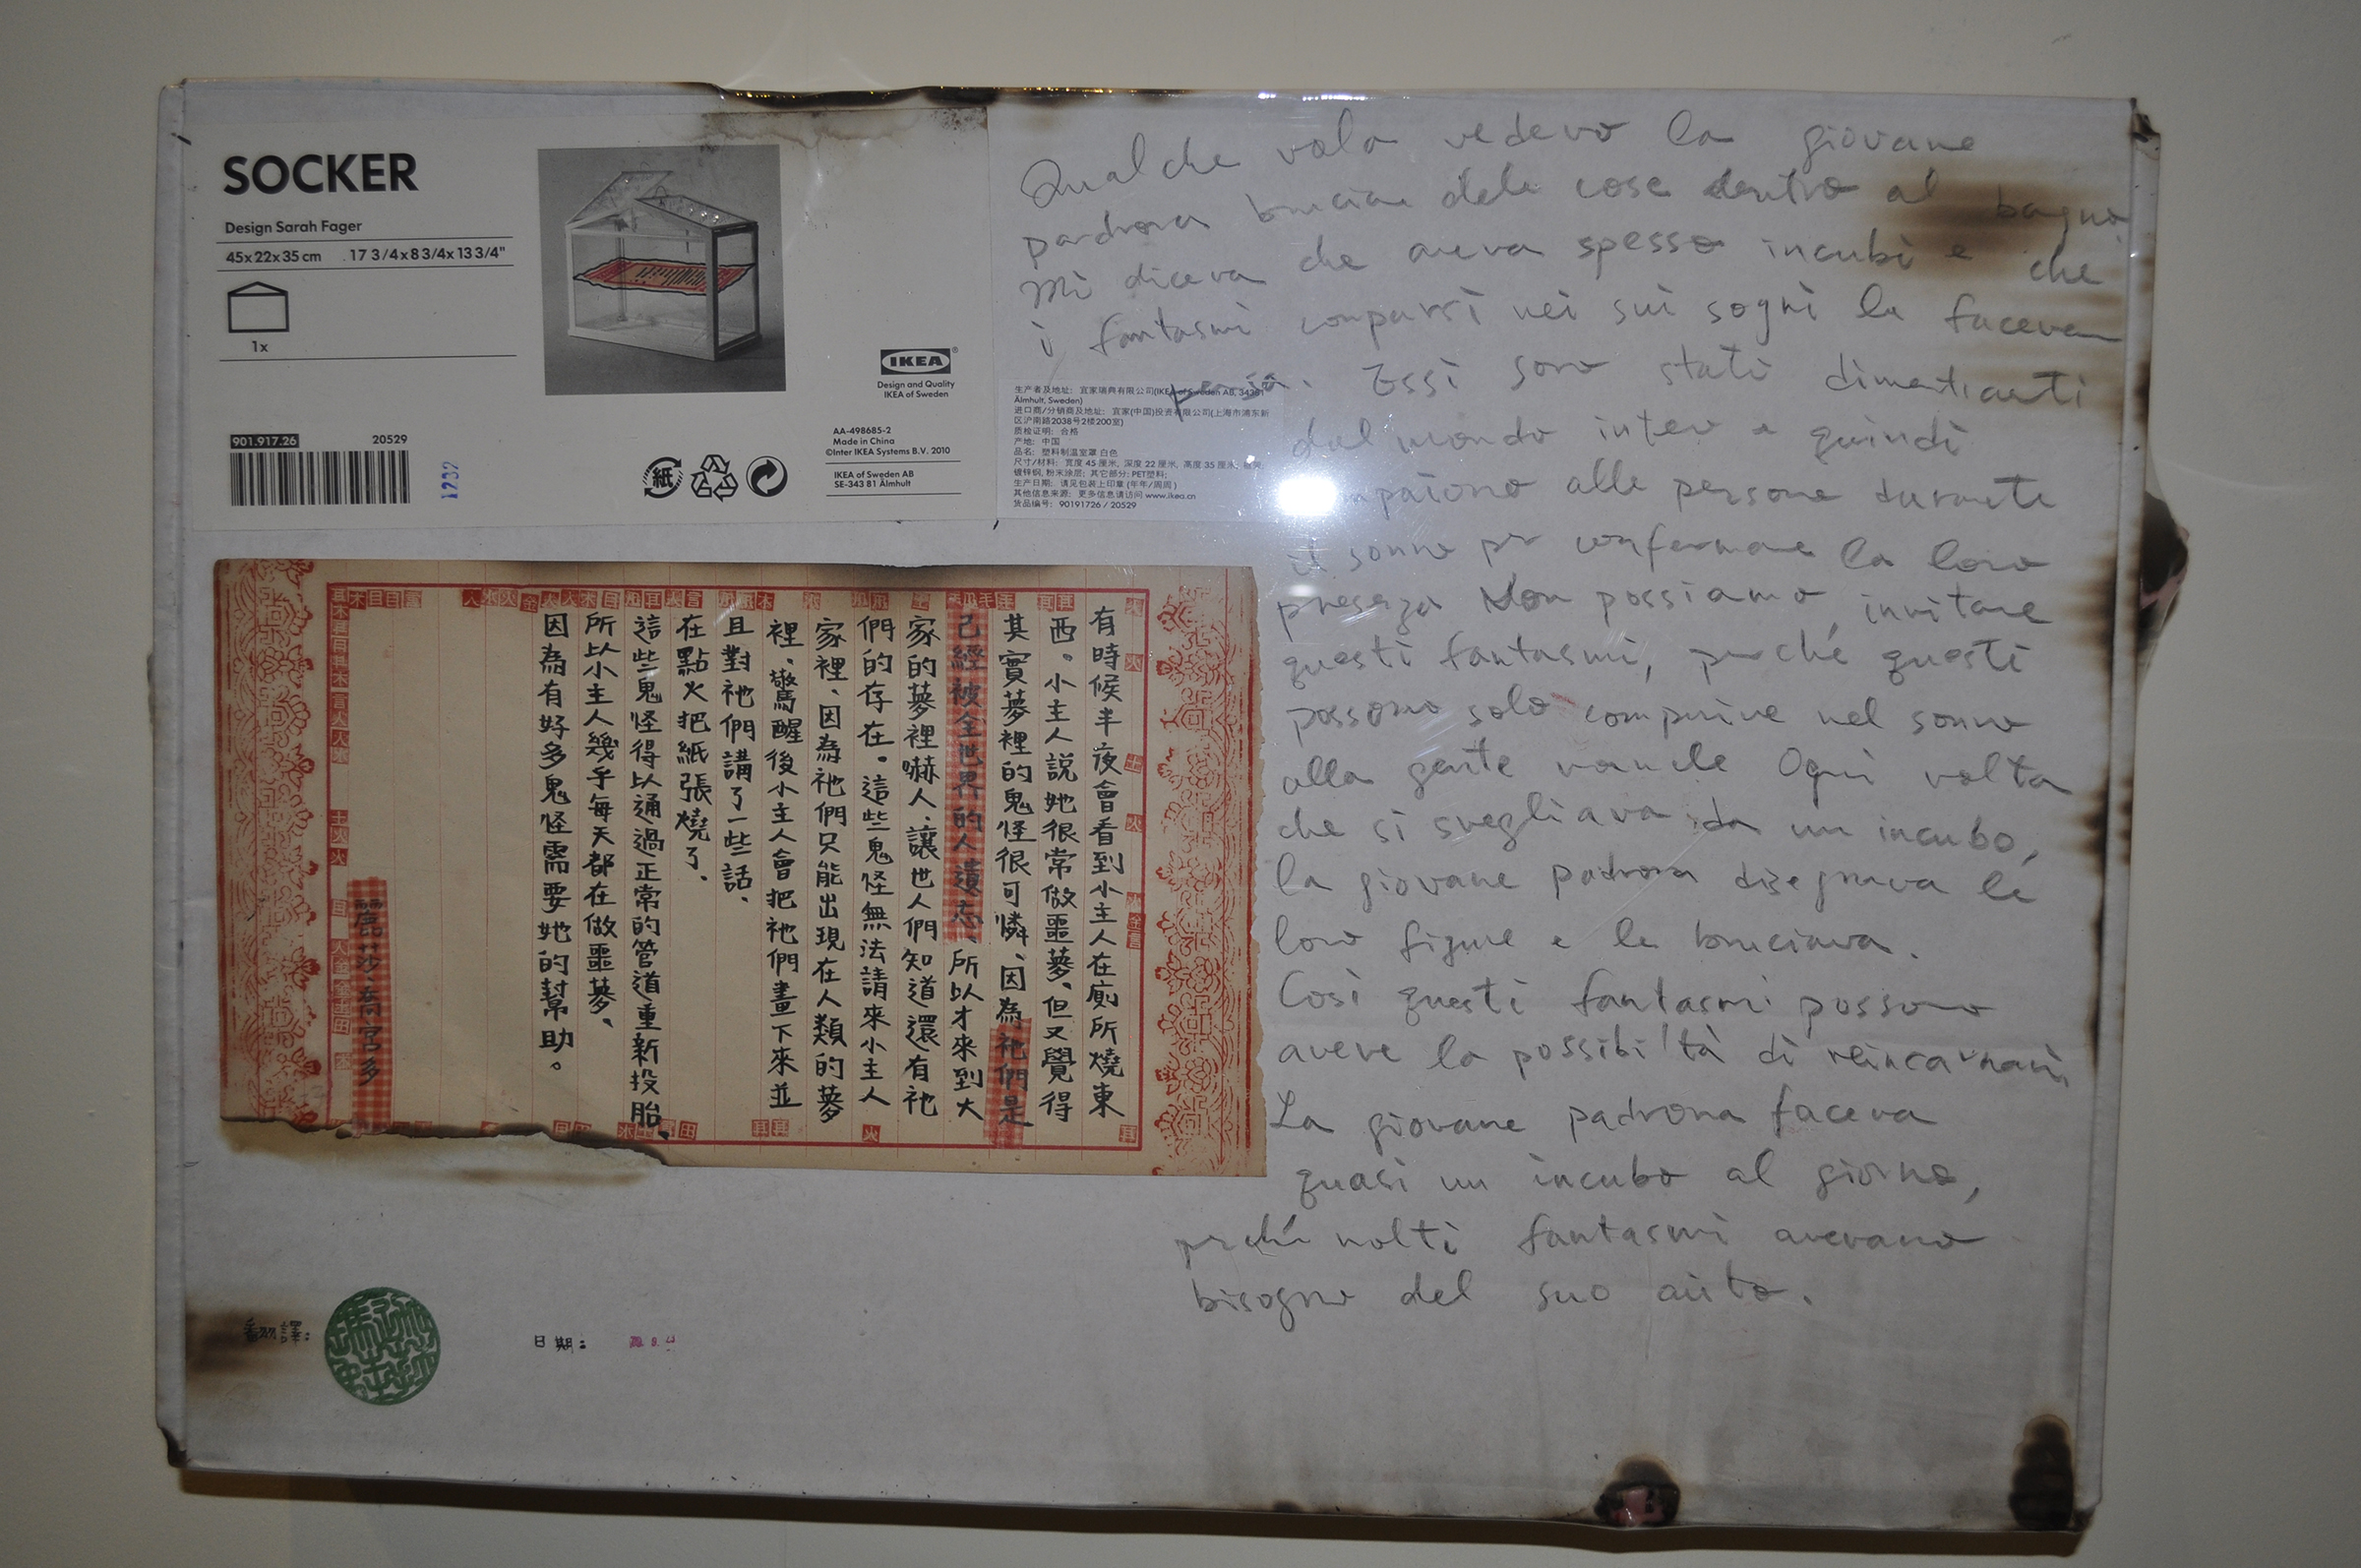 SOCKER
Design Sarah Fager
45x22x35 cm 17 3/4x8 3/4x13 3/4"
1x
IKEA
Design and Quality
IKEA of Sweden
901.917.26 20529
1232
紙
AA-498685-2
Made in China
©Inter IKEA Systems B.V. 2010
IKEA of Sweden AB
SE-343 81 Älmhult
生产者及地址: 宜家瑞典有限公司(IKEA of Sweden AB, 34381
Älmhult, Sweden)
进口商/分销商及地址: 宜家(中国)投资有限公司(上海市浦东新
区沪南路2038号2楼200室)
质检证明: 合格
产地: 中国
品名: 塑料制温室罩 白色
尺寸/材料: 宽度 45 厘米, 深度 22 厘米, 高度 35 厘米,
镀锌钢, 粉末涂层; 其它部分: PET塑料;
生产日期: 请见包装上印章 (年年/周周)
其他信息来源: 更多信息请访问 www.ikea.cn
货品编号: 90191726 / 20529
Qualche vola vedevo la giovane
bruciare cose dentro al bagno
Mi diceva che aveva spesso incubi e che
i fantasmi comparsi nei sui sogni la
Essi sono stati dimenticati
dal mondo e quindi
alle persone durante
il sonno per confermare la loro
presenza Non possiamo invitare
questi fantasmi, perché questi
possono solo comparire nel sonno
alla gente Ogni volta
che si svegliava da un incubo,
la giovane padrona disegnava le
loro figure e le bruciava.
Così questi fantasmi possono
avere la possibilità di
La giovane padrona faceva
quasi un incubo al giorno,
perché molti fantasmi avevano
bisogno del suo aiuto.
有時候半夜會看到小主人在廁所燒東
西。小主人說她很常做噩夢、但又覺得
其實夢裡的鬼怪很可憐、因為祂們是
己經被全世界的人遺忘、所以才來到大
家的夢裡嚇人、讓世人們知道還有祂
們的存在。這些鬼怪無法請來小主人
家裡、因為祂們只能出現在人類的夢
裡、驚醒後小主人會把祂們畫下來並
且對祂們講了一些話、
在點火把紙張燒了、
這些鬼怪得以通過正常的管道重新投胎、
所以小主人幾乎每天都在做噩夢、
因為有好多鬼怪需要她的幫助。
麗莎·喬宮多
翻譯:
日期: